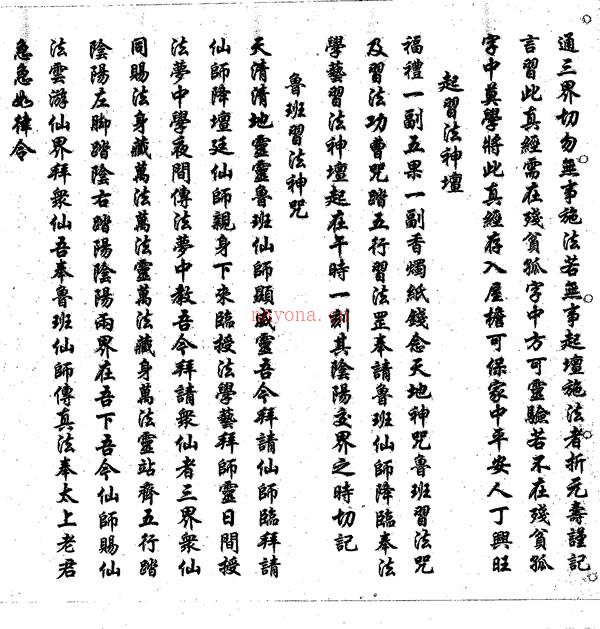 通三界切勿無事施法若無事起壇施法者折元壽謹記
言習此真經需在殘貧孤字中方可靈驗若不在殘貧孤
字中莫學將此真經存入屋檐可保家中平安人丁興旺
起習法神壇
福禮一副五果一副香燭紙錢念天地神咒魯班習法咒
及習法功曹咒踏五行習法罡奉請魯班仙師降臨奉法
學藝習法神壇起在午時一刻其陰陽交界之時切記
魯班習法神咒
天清清地靈靈魯班仙師顯威靈吾今拜請仙師臨拜請
仙師降壇廷仙師親身下來臨授法學藝拜師靈日間授
法夢中學夜間傳法夢中教吾今拜請衆仙者三界衆仙
同賜法身藏萬法萬法靈萬法藏身萬法靈站齊五行踏
陰陽左脚踏陰右踏陽陰陽兩界在吾下吾今仙師賜仙
法雲游仙界拜衆仙吾奉魯班仙師傳真法奉太上老君
急急如律令